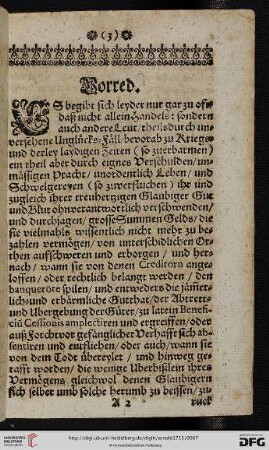 (3)
Vorred.
ES begibt sich leyder nur gar zu oft/
daß nicht allein Handels: sondern
auch andere Leut/ theils durch un-
versehene Unglücks-Fäll/ bevorab zu Kriegs-
und derley laydigen Zeiten (so zuerbarmen)
ein theil aber durch eignes Verschulden/ un-
mässigen Pracht/ unordentlich Leben/ und
Schwelgereyen (so zuverfluchen) ihr und
zugleich ihrer treuhertzigen Glaubiger Gut
und Blut ohnverantwortlich verschwenden/
und durchjagen/ grosse Summen Gelds/ die
sie vielmahls wissentlich nicht mehr zu be-
zahlen vermögen/ von unterschidlichen Or-
then auffschweren und erborgen/ und her-
nach/ wann sie von denen Creditorn ange-
loffen/ oder rechtlich belangt werden/ den
banquerote spilen/ und entweders die jämer-
lich- und erbärmliche Gutthat/ der Abtrett-
und Ubergebung der Güter/ zu latein Benefi-
ciû Cessionis amplectiren und ergreiffen/ oder
auß Forcht vor gefänglicher Verhafft sich ab-
sentiren und entfliehen/ oder auch/ wann sie
von dem Todt übereylet/ und hinweg ge-
rafft worden/ die wenige Uberbißlein ihres
Vermögens gleichwol denen Glaubigern
sich selber und solche herumb zu beissen/ zu-
A 2 ruck
http://digi.ub.uni-heidelberg.de/diglit/
© Universitätsbibliothek Heidelberg
gefördert durch die
DFG